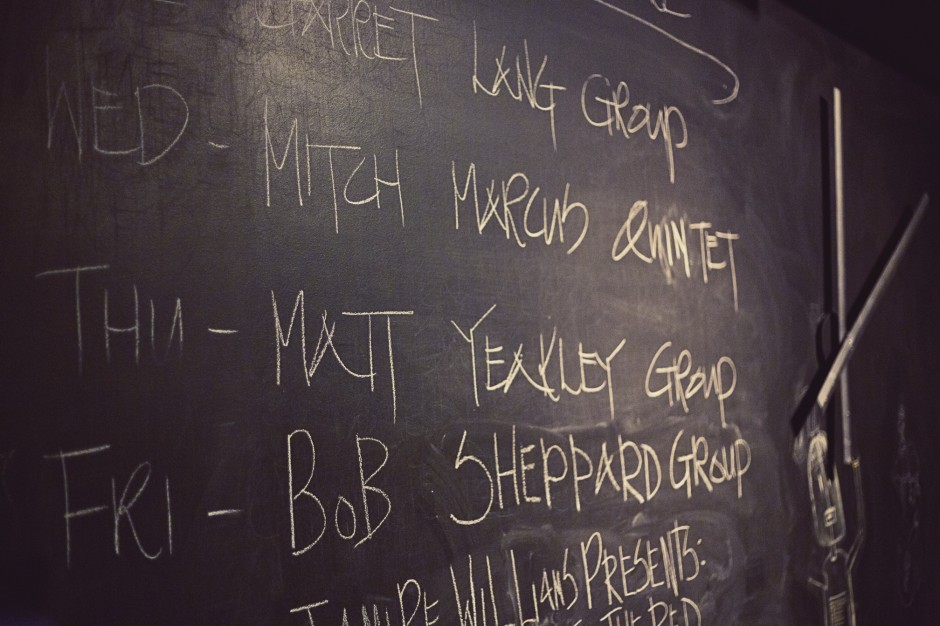 GARRET LANG GROUP
WED - MITCH MARCUS QUINTET
THU - MATT YEAKLEY GROUP
FRI - BOB SHEPPARD GROUP
WILLIAMS PRESENTS:
THE RED